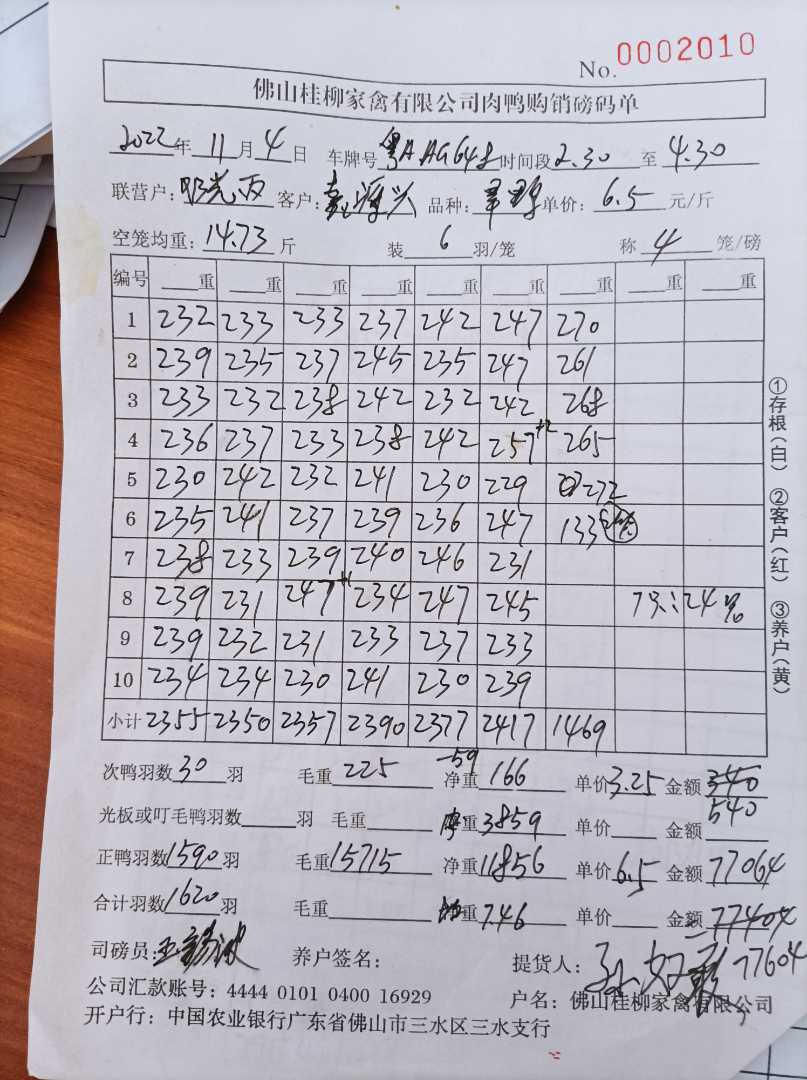 No. 0002010
佛山桂柳家禽有限公司肉鸭购销磅码单
2022年 11月 4日 车牌号 粤A AG648 时间段 2.30 至 4.30
联营户: 客户: 品种: 单价: 6.5 元/斤
空笼均重: 14.73 斤 装 6 羽/笼 称 4 笼/磅
编号 重 重 重 重 重 重 重 重 重
1 232 233 233 237 242 247 270
2 239 235 237 245 235 247 261
3 233 232 238 242 232 242 268
4 236 237 233 238 242 257+2 265
5 230 242 232 241 230 229 272
6 235 241 237 239 236 247 133
7 238 233 239 240 246 231
8 239 231 247+1 234 247 245 24
9 239 232 231 233 237 233
10 234 234 230 241 230 239
小计 2355 2350 2357 2390 2377 2417 1469
次鸭羽数 30 羽 毛重 225 -59 净重 166 单价 3.25 金额 340
540
光板或叮毛鸭羽数 羽 毛重 重 3859 单价 金额
正鸭羽数 1590 羽 毛重 15715 净重 11856 单价 6.5 金额 77064
合计羽数 1620 羽 毛重 重 746 单价 金额 77404
司磅员: 养户签名: 提货人: 77604
公司汇款账号: 4444 0101 0400 16929 户名: 佛山桂柳家禽有限公司
开户行: 中国农业银行广东省佛山市三水区三水支行
①存根(白) ②客户(红) ③养户(黄)